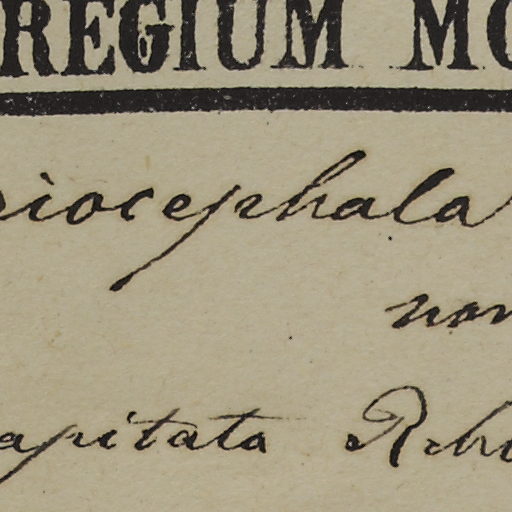 REGIUM MO
riocephala
non
apitata Rchb